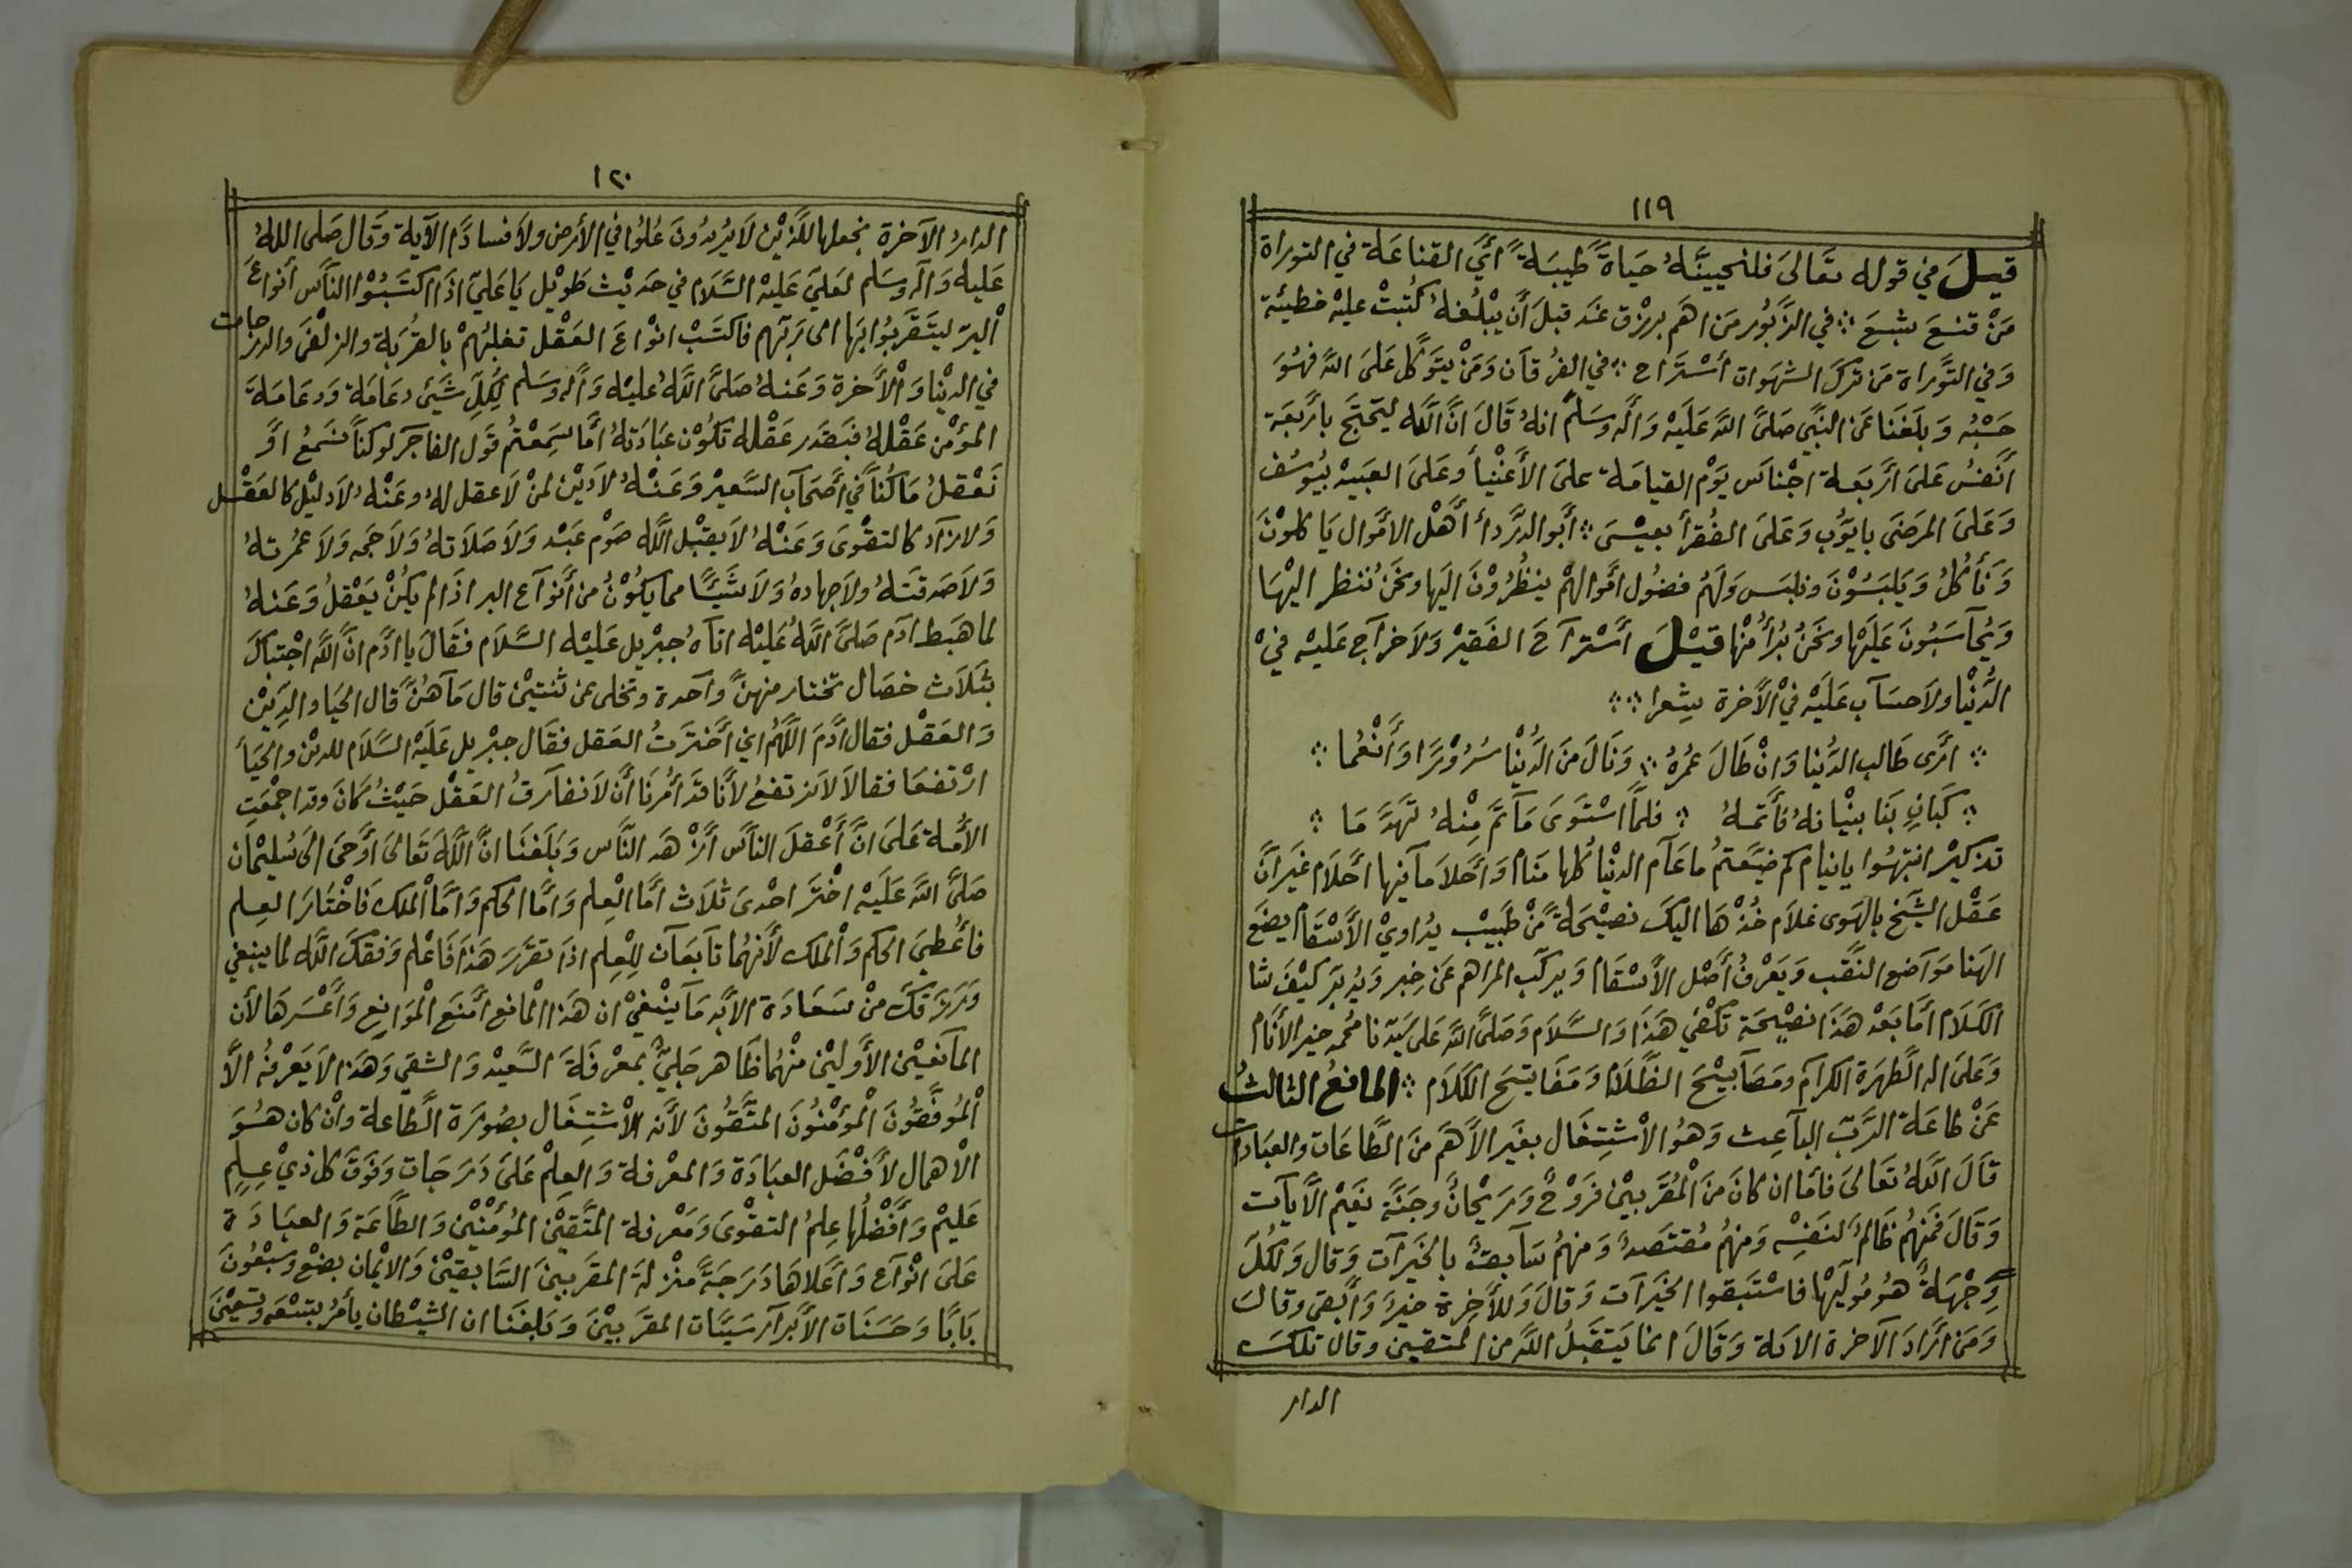 ١١٩
قيل في قوله تعالى فلنحيينّه حياة طيبة أي القناعة في التوراة
من قنع شبع ∴ في الزبور من اهم برزق غد قبل أن يبلغه كتبت عليه خطيئة
وفي التوراة من ترك الشهوات أستراح ∴ في الفرقان ومن يتوكل على الله فهو
حسبه وبلغنا عن النبي صلى الله عليه وآله وسلم انه قال ان الله ليحتج بأربعة
أنفس على أربعة اجناس يوم القيامة على الأغنيأ وعلى العبيد بيوسف
وعلى المرضى بايوب وعلى الفقرأ بعيسى ∴ أبو الدردأ أهل الاموال ياكلون
ونأكل ويلبسون ونلبس ولهم فضول أموالهم ينظرون اليها ونحن ننظر اليها
ويحآسبون عليها ونحن برأ منها قيل أسترآح الفقير ولا خرآج عليه في
الدنيا ولا حسآب عليه في الأخرة شعرا ∴∴
∴ ارى طالب الدنيا وان طال عمره ∴ ونال من الدنيا سرورا وأنعما ∴
∴ كبانٍ بنا بنيانه فأتمه ∴ فلما استوى مآتم منه تهدما ∴
تذكير انتبهوا يانيام كم ضيعتم ماعآم الدنيا كلها منام وأحلا مآفيها احلام غير ان
عقل الشيخ بالهوى غلام خذها اليك نصيحة من طبيب يداوي الأسقام يضع
الهنا موآضع النقب ويعرف أصل الأسقام ويركب المراهم عن خبر ويدبر كيف شا
الكلام أما بعد هذا نصيحة تكفي هذا والسلام وصلى الله على سيدنا محمد خير الأنام
وعلى اله الطهرة الكرام ومصآبيح الظلام ومفاتيح الكلام ∴ المانع الثالث
عن طاعة الرب البآعث وهو الاشتغال بغير الأهم من الطاعات والعبادات
قال الله تعالى فأما ان كان من المقربين فروح وريحان وجنة نعيم الآيات
وقال فمنهم ظالم لنفسه ومنهم مقتصد ومنهم سآبق بالخيرآت وقال ولكل
وجهة هو موليها فاستبقوا الخيرآت وقال وللأخرة خير وأبقى وقال
ومن أراد الآخرة الاية وقال انما يتقبل الله من المتقين وقال تلك
الدار
١٢٠
الدار الآخرة نجعلها للذين لا يريدون علوا في الأرض ولا فسادا الآية وقال صلى الله
عليه وآله وسلم لعلي عليه السلام في حديث طويل يا علي اذا اكتسبوا الناس أنواع
البر ليتقربوا بها الى ربهم فاكتسب انواع العقل تغلبهم بالقربة والزلفى والدرجات
في الدنيا والأخرة وعنه صلى الله عليه وآله وسلم لكل شيئ دعامة ودعامة
المؤمن عقله فبقدر عقله تكون عبادته أما سمعتم قول الفاجر لو كنا نسمع او
نعقل ما كنا في أصحآب السعير وعنه لا دين لمن لا عقل له وعنه لا دليل كالعقل
ولا زآد كالتقوى وعنه لا يقبل الله صوم عبد ولا صلاته ولا حجه ولا عمرته
ولا صدقته ولا جهاده ولا شيئا مما يكون من أنوآع البر اذا لم يكن يعقل وعنه
لما هبط ادم صلى الله عليه اتآه جبريل عليه السلام فقال يا ادم ان الله اجتباك
بثلاث خصال تختار منهن وآحدة وتخلى عن ثنتين قال مآهن قال الحيا والدين
والعقل فقال أدم اللهم اني أخترت العقل فقال جبريل عليه السلام للدين والحيأ
ارتفعا فقالا لا نرتفع لأنا قد أمرنا أن لا نفآرق العقل حيث كان وقد اجمعت
الأمة على ان أعقل الناس أزهد الناس وبلغنا ان الله تعالى أوحى الى سليمان
صلى الله عليه اختر احدى ثلاث أما العلم وأما الحكم وأما الملك فاختار العلم
فأعطي الحكم والملك لأنهما تآبعآن للعلم اذا تقرر هذا فاعلم وفقك الله لما ينبغي
ورزقك من سعادة الأبد مآينبغي ان هذا المانع أمنع الموانع وأعسرها لأن
المآنعين الأولين منهما ظاهر جلي بمعرفة السعيد والشقي وهذا لا يعرفه الا
الموفقون المؤمنون المتقون لأنه الاشتغال بصورة الطاعة وان كان هو
الاهمال لأفضل العبادة والمعرفة والعلم على درجات وفوق كل ذي علم
عليم وأفضلها علم التقوى ومعرفة المتقين المؤمنين والطاعة والعبادة
على انوآع وأعلاها درجة منزلة المقربين السابقين والايمان بضع وسبعون
بابا وحسنات الأبرآر سيئات المقربين وبلغنا ان الشيطان يأمر بتسعه وتسعين